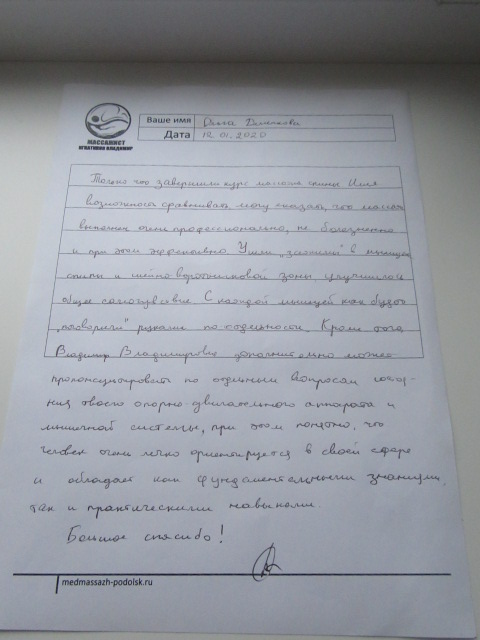 МАССАЖИСТ
ИГНАТЮШИН ВЛАДИМИР
Ваше имя Ольга
Дата 12.01.2020
Только что завершили курс массажа спины. Имея
возможность сравнивать могу сказать, что массаж
выполнен очень профессионально, не болезненно
и при этом эффективно. Ушли "зажимы" в мышцах
спины и шейно воротниковой зоны, улучшилось
общее самочувствие. С каждой мышцей как будто
"поговорили" руками по отдельности. Кроме того
Владимир Владимирович дополнительно может
проконсультировать по отдельным вопросам состоя-
ния твоего опорно-двигательного аппарата и
мышечной системы, при этом понятно, что
человек очень легко ориентируется в своей сфере
и обладает как фундаментальными знаниями,
так и практическими навыками.
Большое спасибо!
medmassazh-podolsk.ru